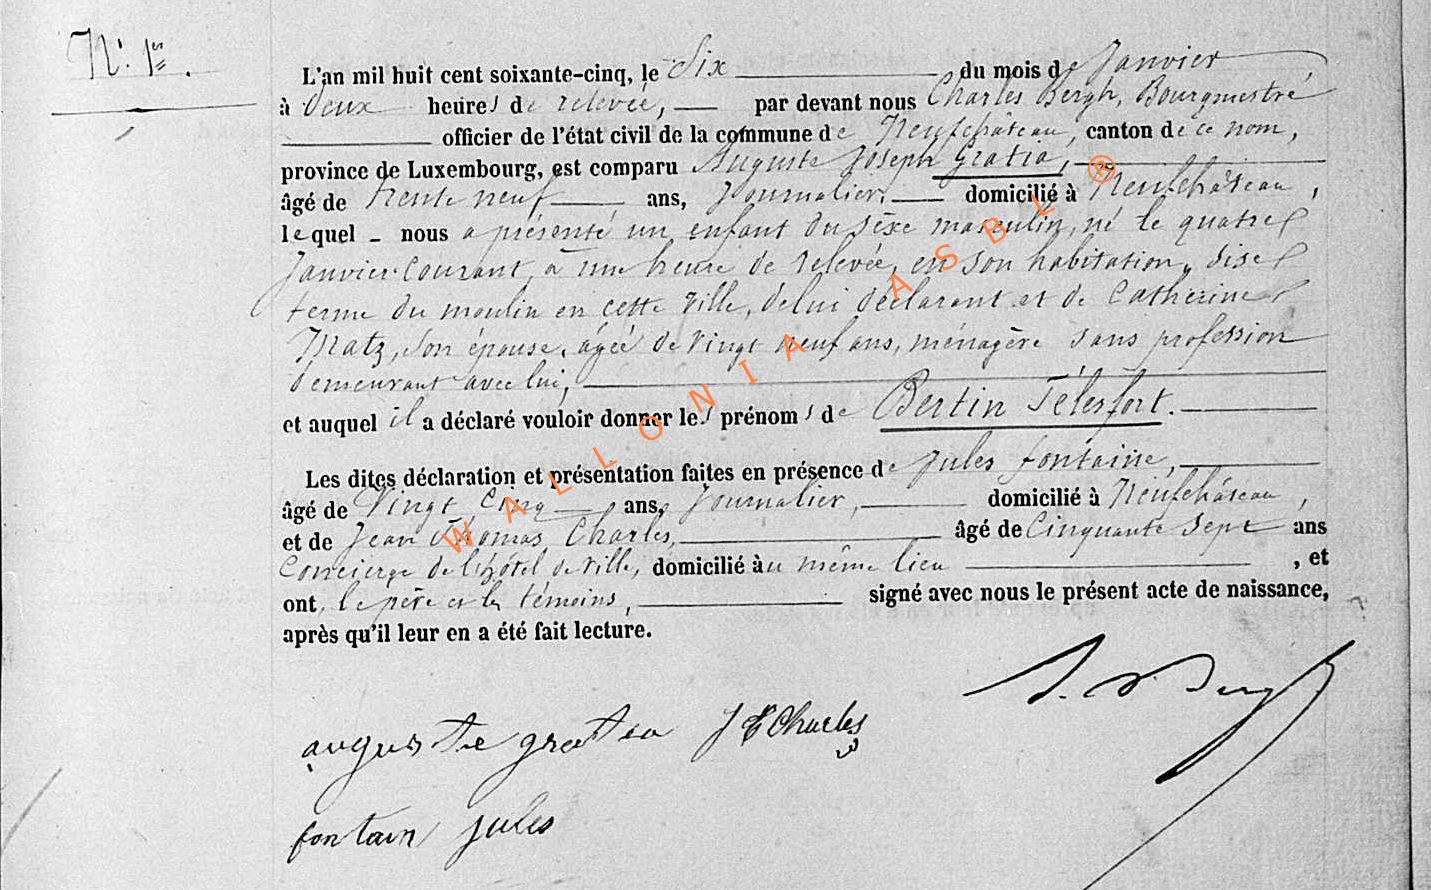 N° 1er.
L'an mil huit cent soixante-cinq, le Six du mois de Janvier
à deux heures de relevée, par devant nous Charles Bergh, Bourgmestre
officier de l'état civil de la commune de Neufchâteau, canton de ce nom,
province de Luxembourg, est comparu Auguste Joseph Gratia,
âgé de trente neuf ans, Journalier, domicilié à Neufchâteau,
lequel nous a présenté un enfant du sexe masculin, né le quatre
Janvier courant, à une heure de relevée, en son habitation, dise
ferme du moulin en cette ville, de lui déclarant et de Catherine
Matz, son épouse, âgée de vingt neuf ans, ménagère sans profession
demeurant avec lui,
et auquel il a déclaré vouloir donner les prénoms de Bertin Télesfort.
Les dites déclaration et présentation faites en présence de Jules fontaine,
âgé de Vingt Cinq ans, Journalier, domicilié à Neufchâteau,
et de Jean Thomas Charles, âgé de Cinquante Sept ans
Concierge de l'hôtel de ville, domicilié au même lieu , et
ont, le père et les témoins, signé avec nous le présent acte de naissance,
après qu'il leur en a été fait lecture.
auguste gratia Charles
fontain jules
WALLONIA ASBL ®